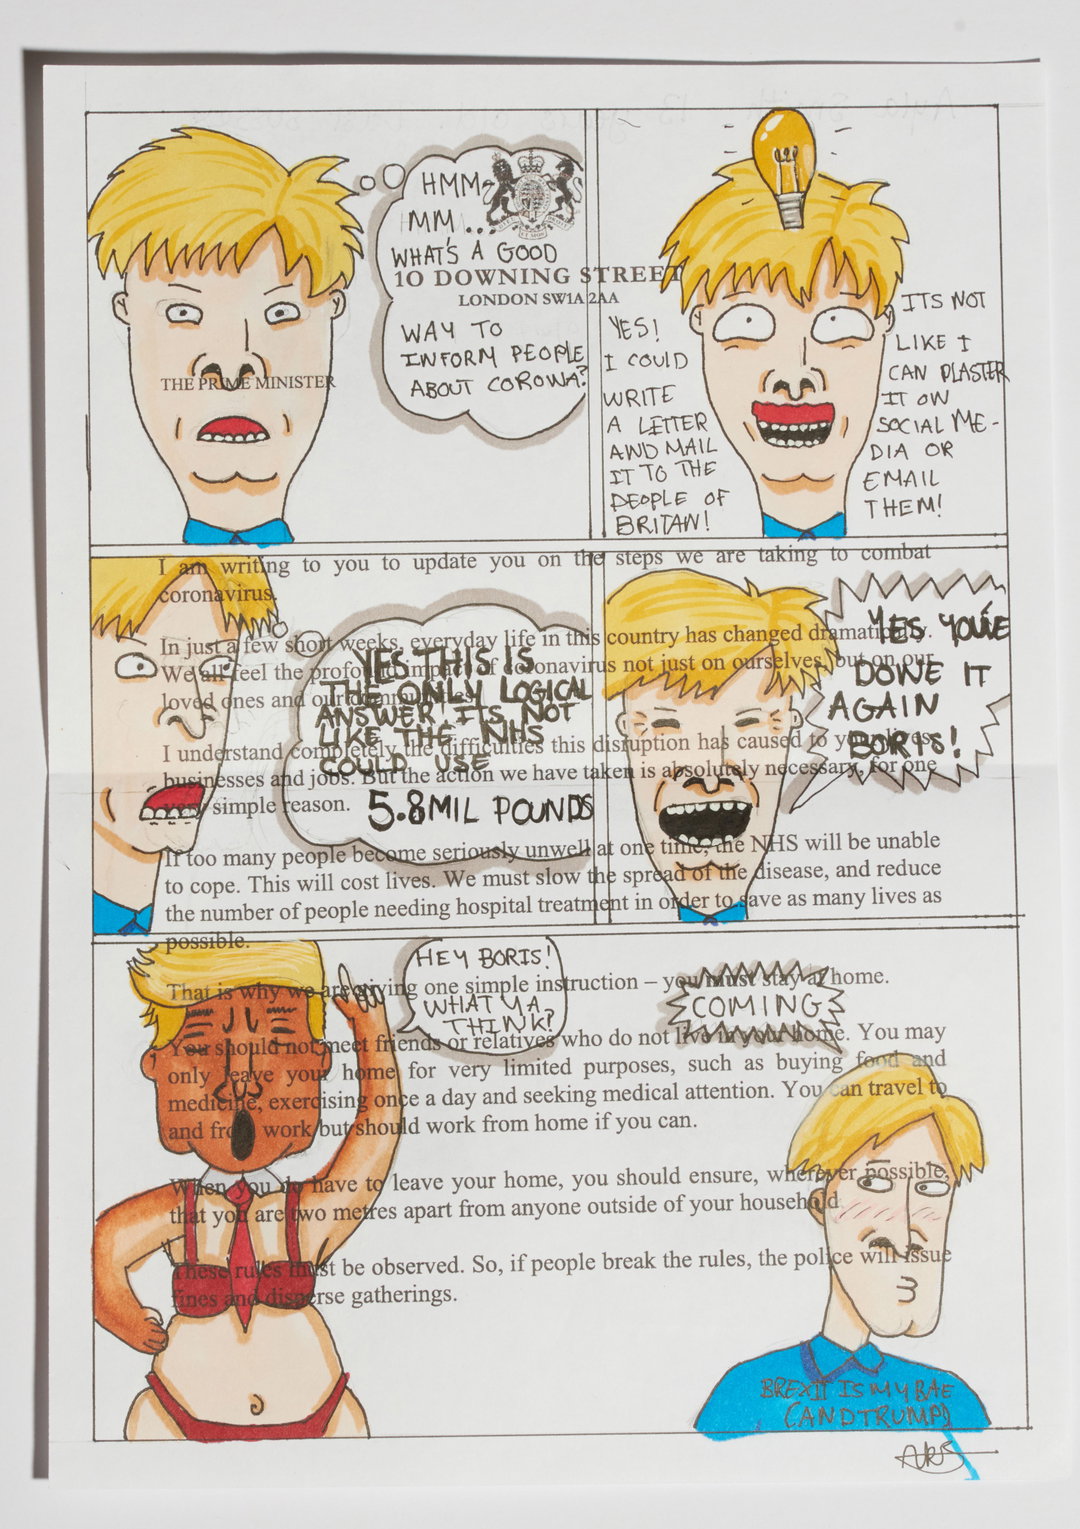 HMM-
MM...
WHAT'S A GOOD
10 DOWNING STREET
LONDON SW1A 2AA
WAY TO
INFORM PEOPLE
ABOUT COROWA?
THE PRIME MINISTER
YES!
I COULD
WRITE
A LETTER
AND MAIL
IT TO THE
PEOPLE OF
BRITAN!
ITS NOT
LIKE I
CAN PLASTER
IT ON
SOCIAL ME-
DIA OR
EMAIL
THEM!
I am writing to you to update you on the steps we are taking to combat
coronavirus.
In just a few short weeks, everyday life in this country has changed dramatically.
We all feel the profound impact of coronavirus not just on ourselves, but on our
loved ones and our communities.
I understand completely the difficulties this disruption has caused to your lives,
businesses and jobs. But the action we have taken is absolutely necessary, for one
very simple reason.
If too many people become seriously unwell at one time, the NHS will be unable
to cope. This will cost lives. We must slow the spread of the disease, and reduce
the number of people needing hospital treatment in order to save as many lives as
possible.
YES THIS IS
THE ONLY LOGICAL
ANSWER, ITS NOT
LIKE THE NHS
COULD USE
5.8MIL POUNDS
YES YOU'VE
DONE IT
AGAIN
BORIS!
That is why we are giving one simple instruction – you must stay at home.
You should not meet friends or relatives who do not live in your home. You may
only leave your home for very limited purposes, such as buying food and
medicine, exercising once a day and seeking medical attention. You can travel to
and from work but should work from home if you can.
When you do have to leave your home, you should ensure, wherever possible,
that you are two metres apart from anyone outside of your household.
These rules must be observed. So, if people break the rules, the police will issue
fines and disperse gatherings.
HEY BORIS!
WHAT YA
THINK?
COMING
BREXIT IS MY BAE
(AND TRUMP)